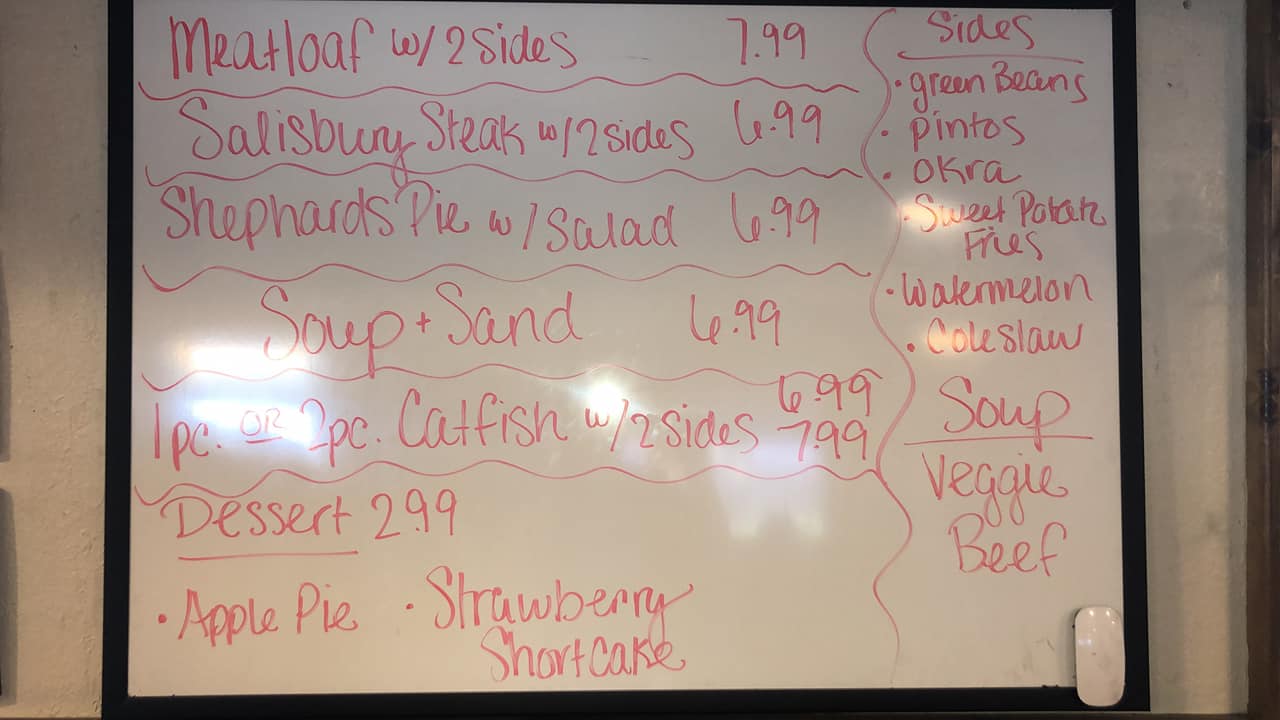 Meatloaf w/ 2 sides 7.99
Salisbury Steak w/ 2 sides 6.99
Shephards Pie w/ Salad 6.99
Soup + Sand 6.99
1pc. OR 2pc. Catfish w/ 2 sides 6.99
7.99
Dessert 2.99
• Apple Pie • Strawberry
Shortcake
Sides
• green Beans
• pintos
• okra
• Sweet Potato
Fries
• Watermelon
• Coleslaw
Soup
Veggie
Beef